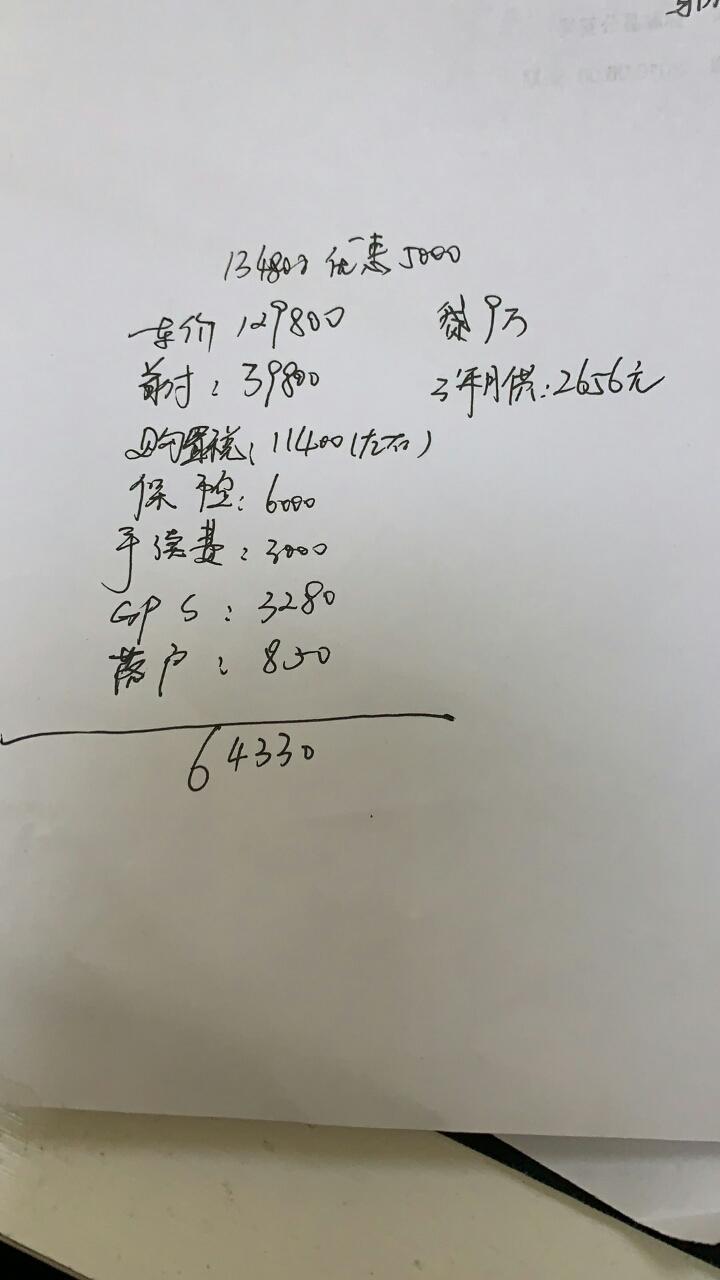 134800 优惠5000
车价 129800 贷9万
首付：39800 3年月供：2656元
购置税：11400（左右）
保险：6000
手续费：3000
GPS：3280
落户：850
64330